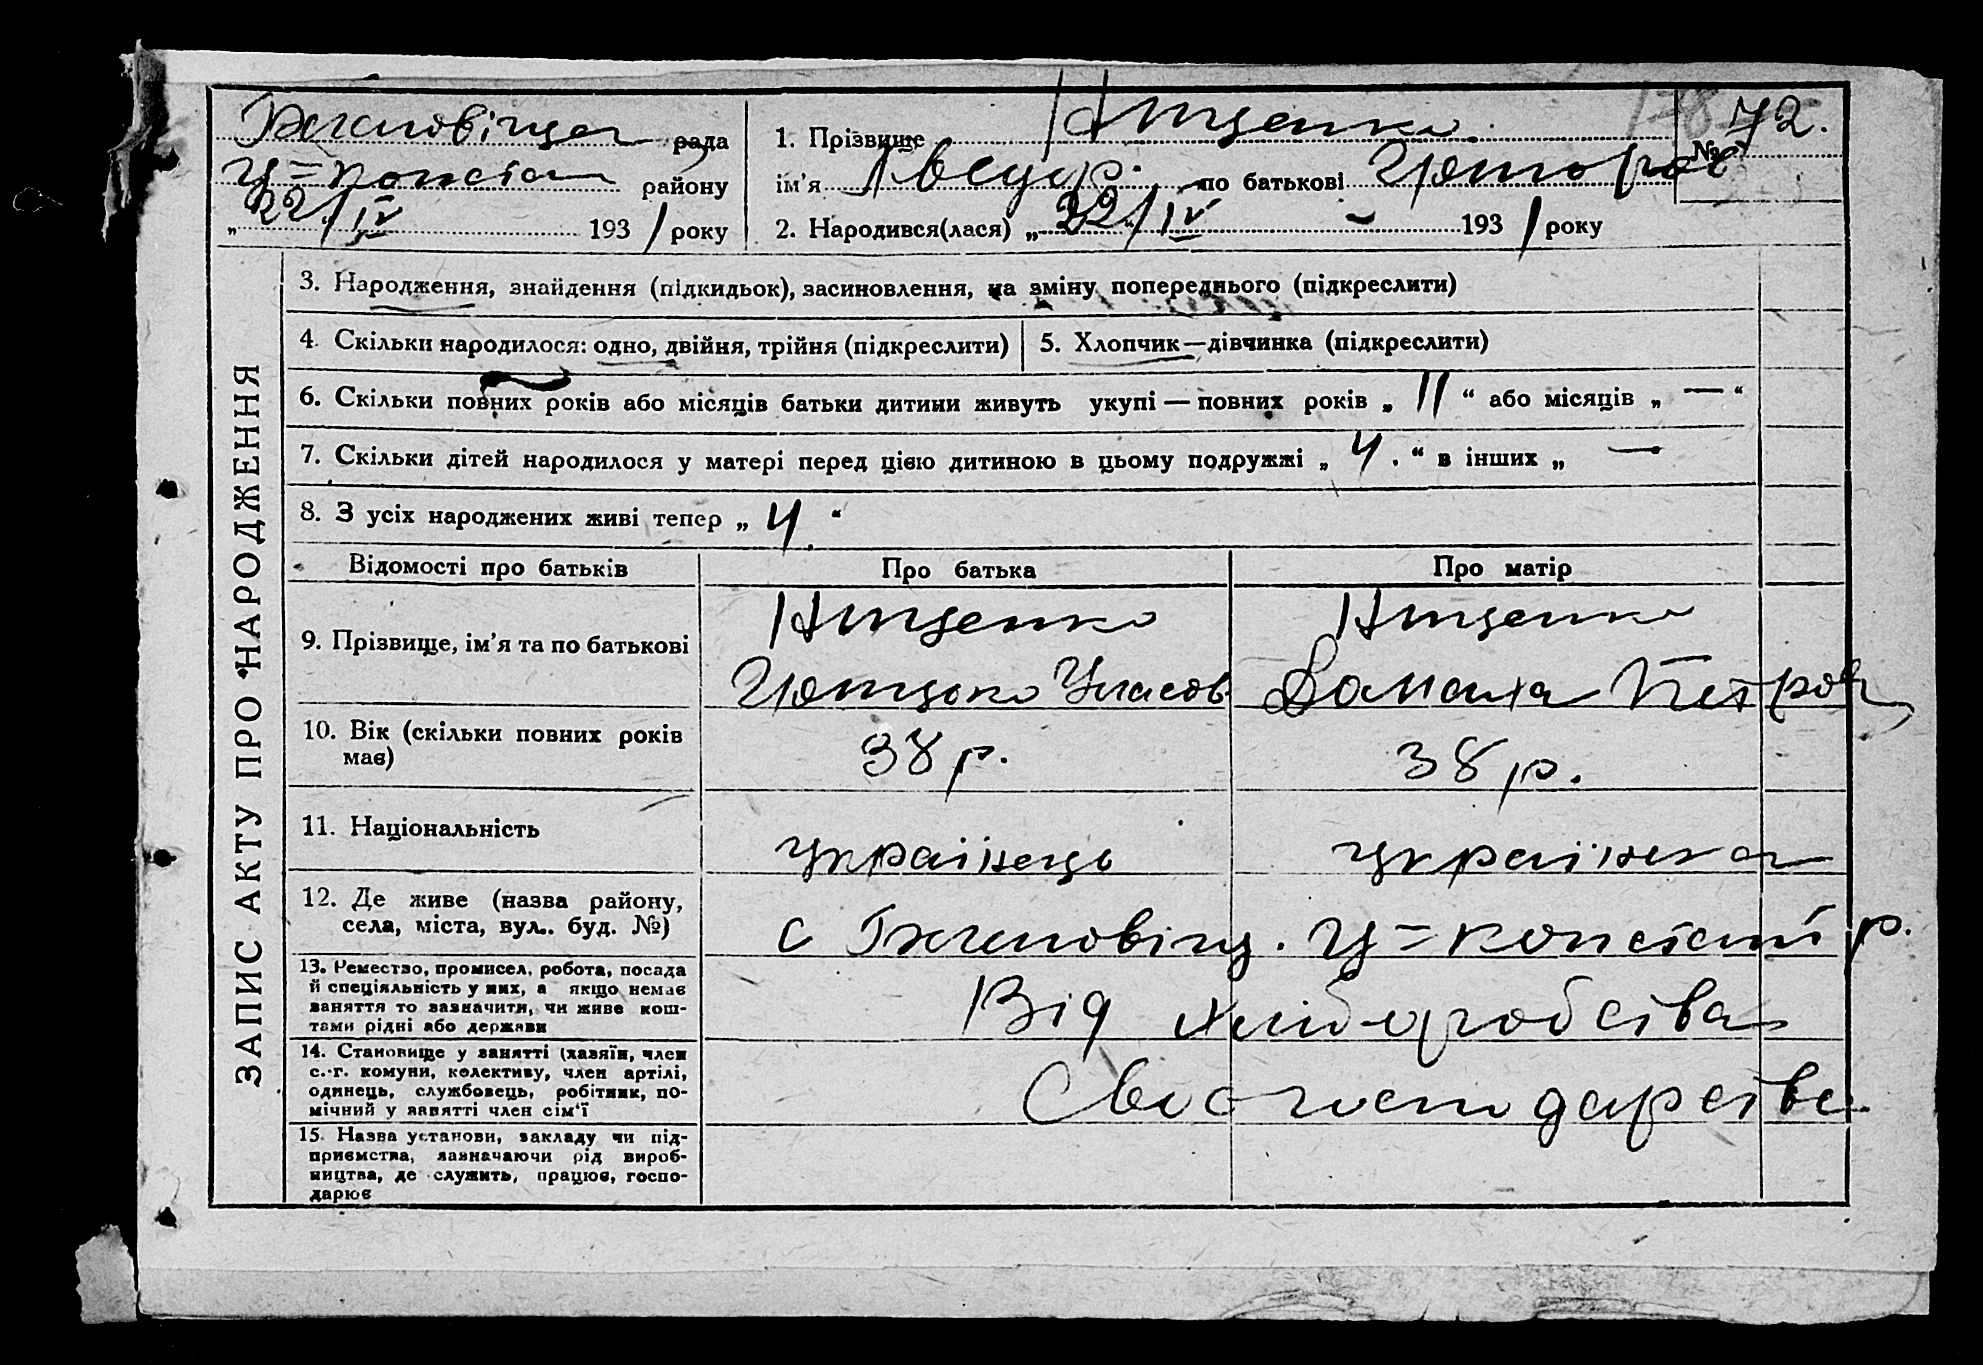 рада
району
„ 22/IV 1931 року
1. Прізвище Нищенко
№ 72.
ім’я по батькові
2. Народився(лася) „ 22/IV 1931 року
ЗАПИС АКТУ ПРО НАРОДЖЕННЯ
3. Народження, знайдення (підкидьок), засиновлення, на зміну попереднього (підкреслити)
4. Скільки народилося: одно, двійня, трійня (підкреслити)
5. Хлопчик—дівчинка (підкреслити)
6. Скільки повних років або місяців батьки дитини живуть укупі — повних років „ 11 “ або місяців „ — “
7. Скільки дітей народилося у матері перед цією дитиною в цьому подружжі „ 4. “ в інших „ —
8. З усіх народжених живі тепер „ 4. “
Відомості про батьків
Про батька
Про матір
9. Прізвище, ім’я та по батькові
Нищенко
Грицько Уласов
Нищенко
Домаха Петров
10. Вік (скільки повних років
має)
38 р.
38 р.
11. Національність
українець
українка
12. Де живе (назва району,
села, міста, вул.. буд. №)
с р.
13. Ремество, промисел, робота, посада
й спеціяльність у них, а якщо немає
заняття то зазначити, чи живе кош-
тами рідні або держави
Від хліборобства
14. Становище у занятті (хазяїн, член
с.-г. комуни, колективу, член артілі,
одинець, службовець, робітник, по-
мічний у занятті член сім‘ї
господарства
15. Назва установи, закладу чи під-
приємства, зазначаючи рід вироб-
ництва, де служить, працює, госпо-
дарює